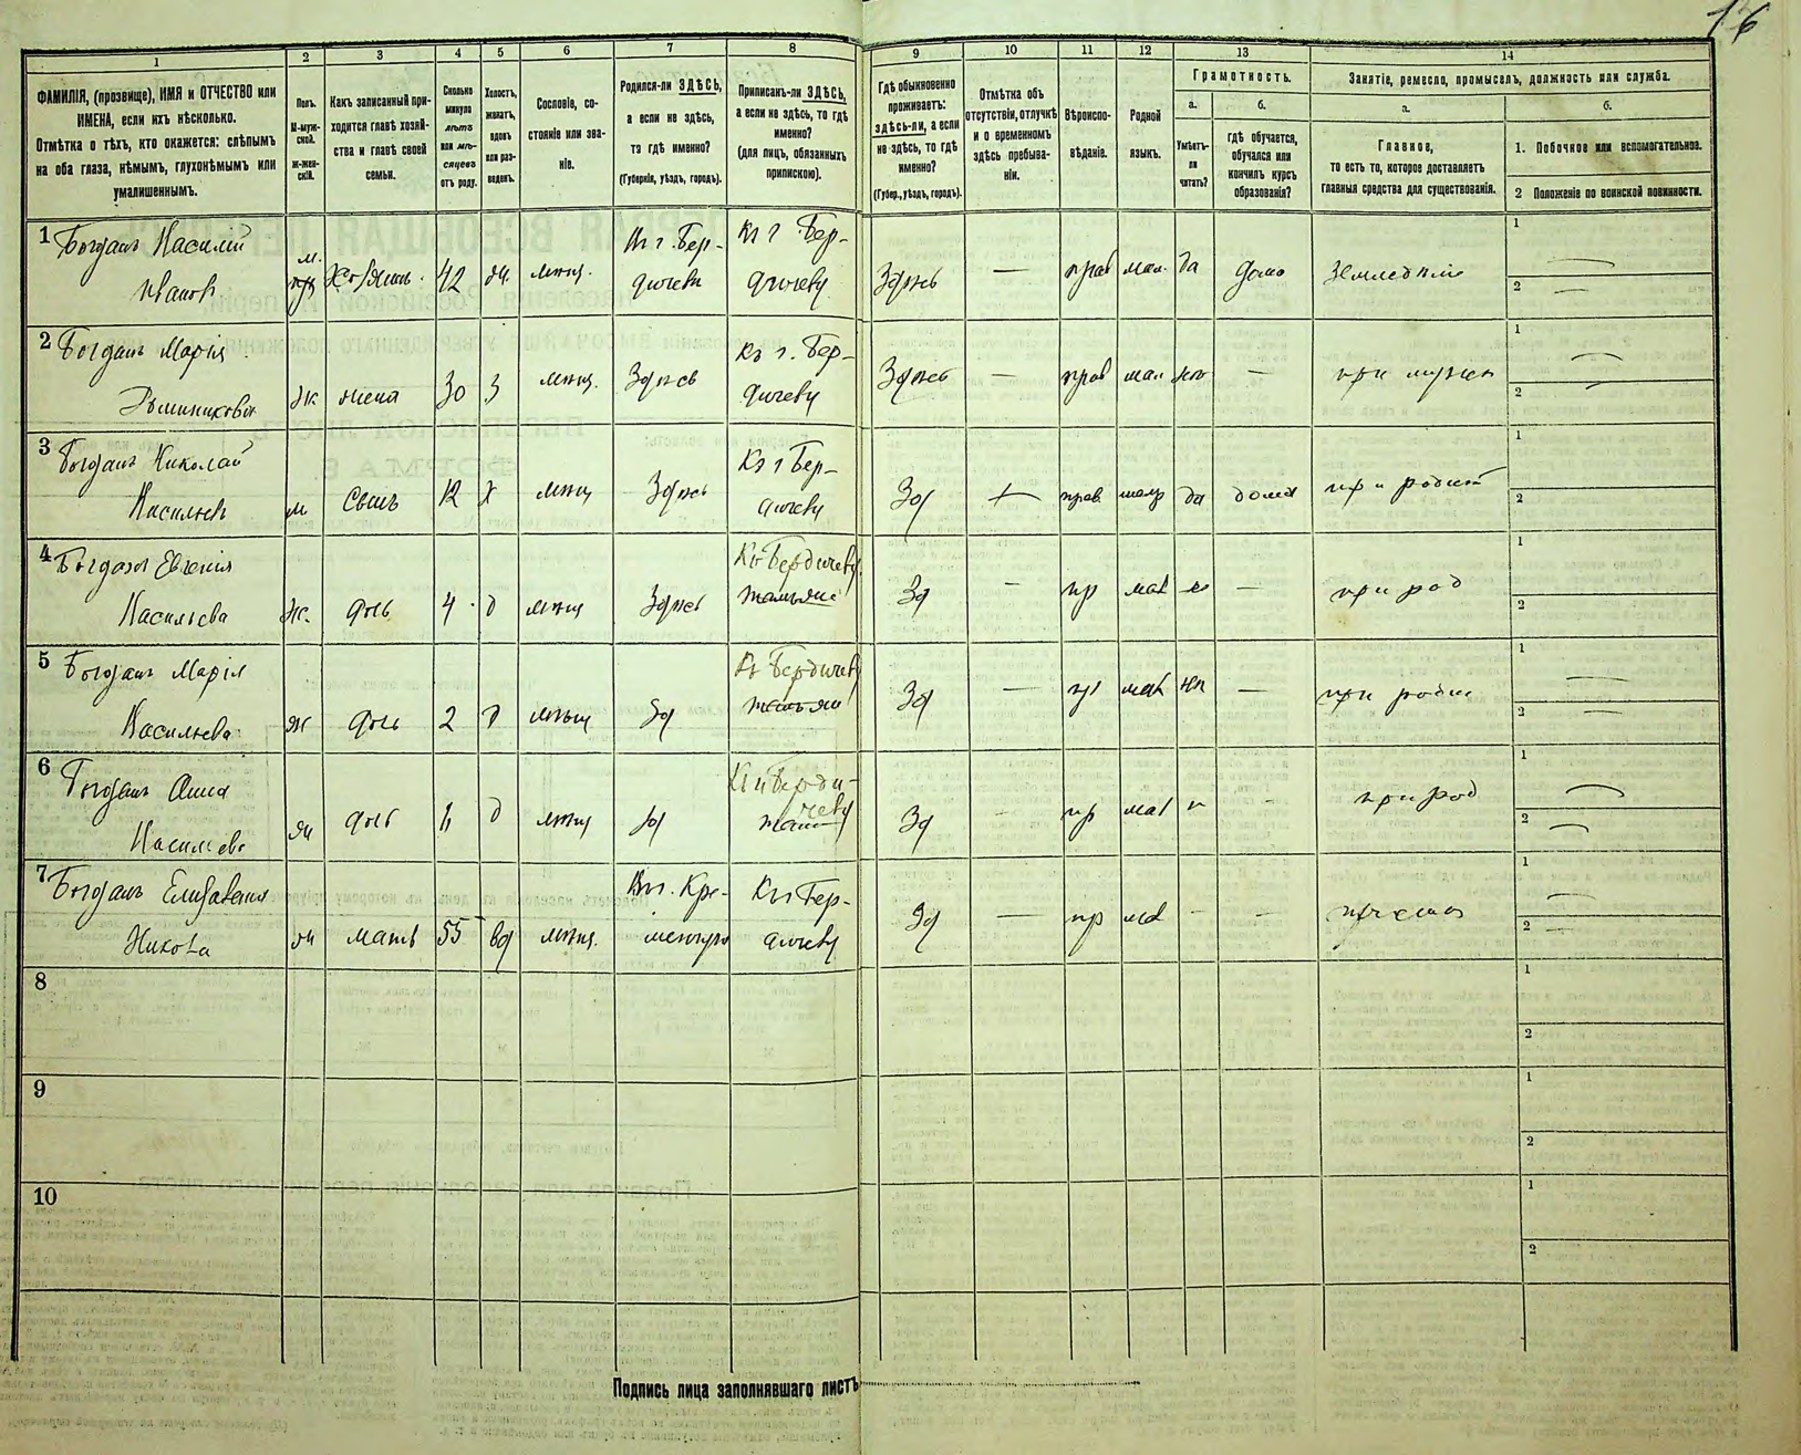 16
1
2
3
4
5
6
7
8
9
10
11
12
13
14
ФАМИЛІЯ, (прозвище), ИМЯ и ОТЧЕСТВО или
ИМЕНА, если ихъ нѣсколько.
Отмѣтка о тѣхъ, кто окажется: слѣпымъ
на оба глаза, нѣмымъ, глухонѣмымъ или
умалишеннымъ.
Полъ.
М-муж-
ской.
Ж-жен-
скій.
Какъ записанный при-
ходится главѣ хозяй-
ства и главѣ своей
семьи.
Сколько
минуло
лѣтъ
или мѣ-
сяцевъ
отъ роду.
Холостъ,
женатъ,
вдовъ
или раз-
веденъ.
Сословіе, со-
стояніе или зва-
ніе.
Родился-ли ЗДѢСЬ,
а если не здѣсь,
то гдѣ именно?
(Губернія, уѣздъ, городъ).
Приписанъ-ли ЗДѢСЬ,
а если не здѣсь, то гдѣ
именно?
(для лицъ, обязанныхъ
припискою).
Гдѣ обыкновенно
проживаетъ:
здѣсь-ли, а если
не здѣсь, то гдѣ
именно?
(Губер., уѣздъ, городъ).
Отмѣтка объ
отсутствіи, отлучкѣ
и о временномъ
здѣсь пребыва-
ніи.
Вѣроиспо-
вѣданіе.
Родной
языкъ.
Грамотность.
а.
б.
Умѣетъ-
ли
читать?
гдѣ обучается,
обучался или
кончилъ курсъ
образованія?
Занятіе, ремесло, промыселъ, должность или служба.
а.
б.
Главное,
то есть то, которое доставляетъ
главныя средства для существованія.
1. Побочное или вспомогательное.
2 Положеніе по воинской повинности.
1 Богданъ Василій
Ивановъ
м.
Хозяинъ
42
ж.
мѣщ.
Въ г. Бер-
дичевѣ
Къ г. Бер-
дичеву
Здѣсь
—
прав
мал.
да
дома
Земледѣліе
1
2
2 Богданъ Марія
ж
жена
30
З
мѣщ.
Здѣсь
Къ г. Бер-
дичеву
Здѣсь
—
прав
мал
—
при мужѣ
1
2
3 Богданъ Николай
Васильевъ
м
Сынъ
12
х
мѣщ
Здѣсь
Къ г Бер-
дичеву
Зд
прав.
да
дома
при родит
1
2
4 Богданъ Евгенія
Васильева
ж.
дочь
4
д
мѣщ
Здѣсь
Къ Бердичеву
Зд
—
пр
мал
—
при род
1
2
5 Богданъ Марія
Васильева
ж
дочь
2
мѣщ
Зд
Къ Бердичеву
Зд
—
пр
мал
—
при роди
1
2
6 Богданъ Анна
Васильева
ж
дочь
д
мѣщ
Зд
Къ Берди-
чеву
Зд
пр
мал
н
-
при род
1
2
7 Богданъ Елизавета
ж
мать
55
вд
мѣщ.
Въ г. Кре-
менчугѣ
Къ г Бер-
дичеву
Зд
—
пр
мал
-
-
при сынѣ
1
2
8
1
2
9
1
2
10
1
2
Подпись лица заполнявшаго листъ